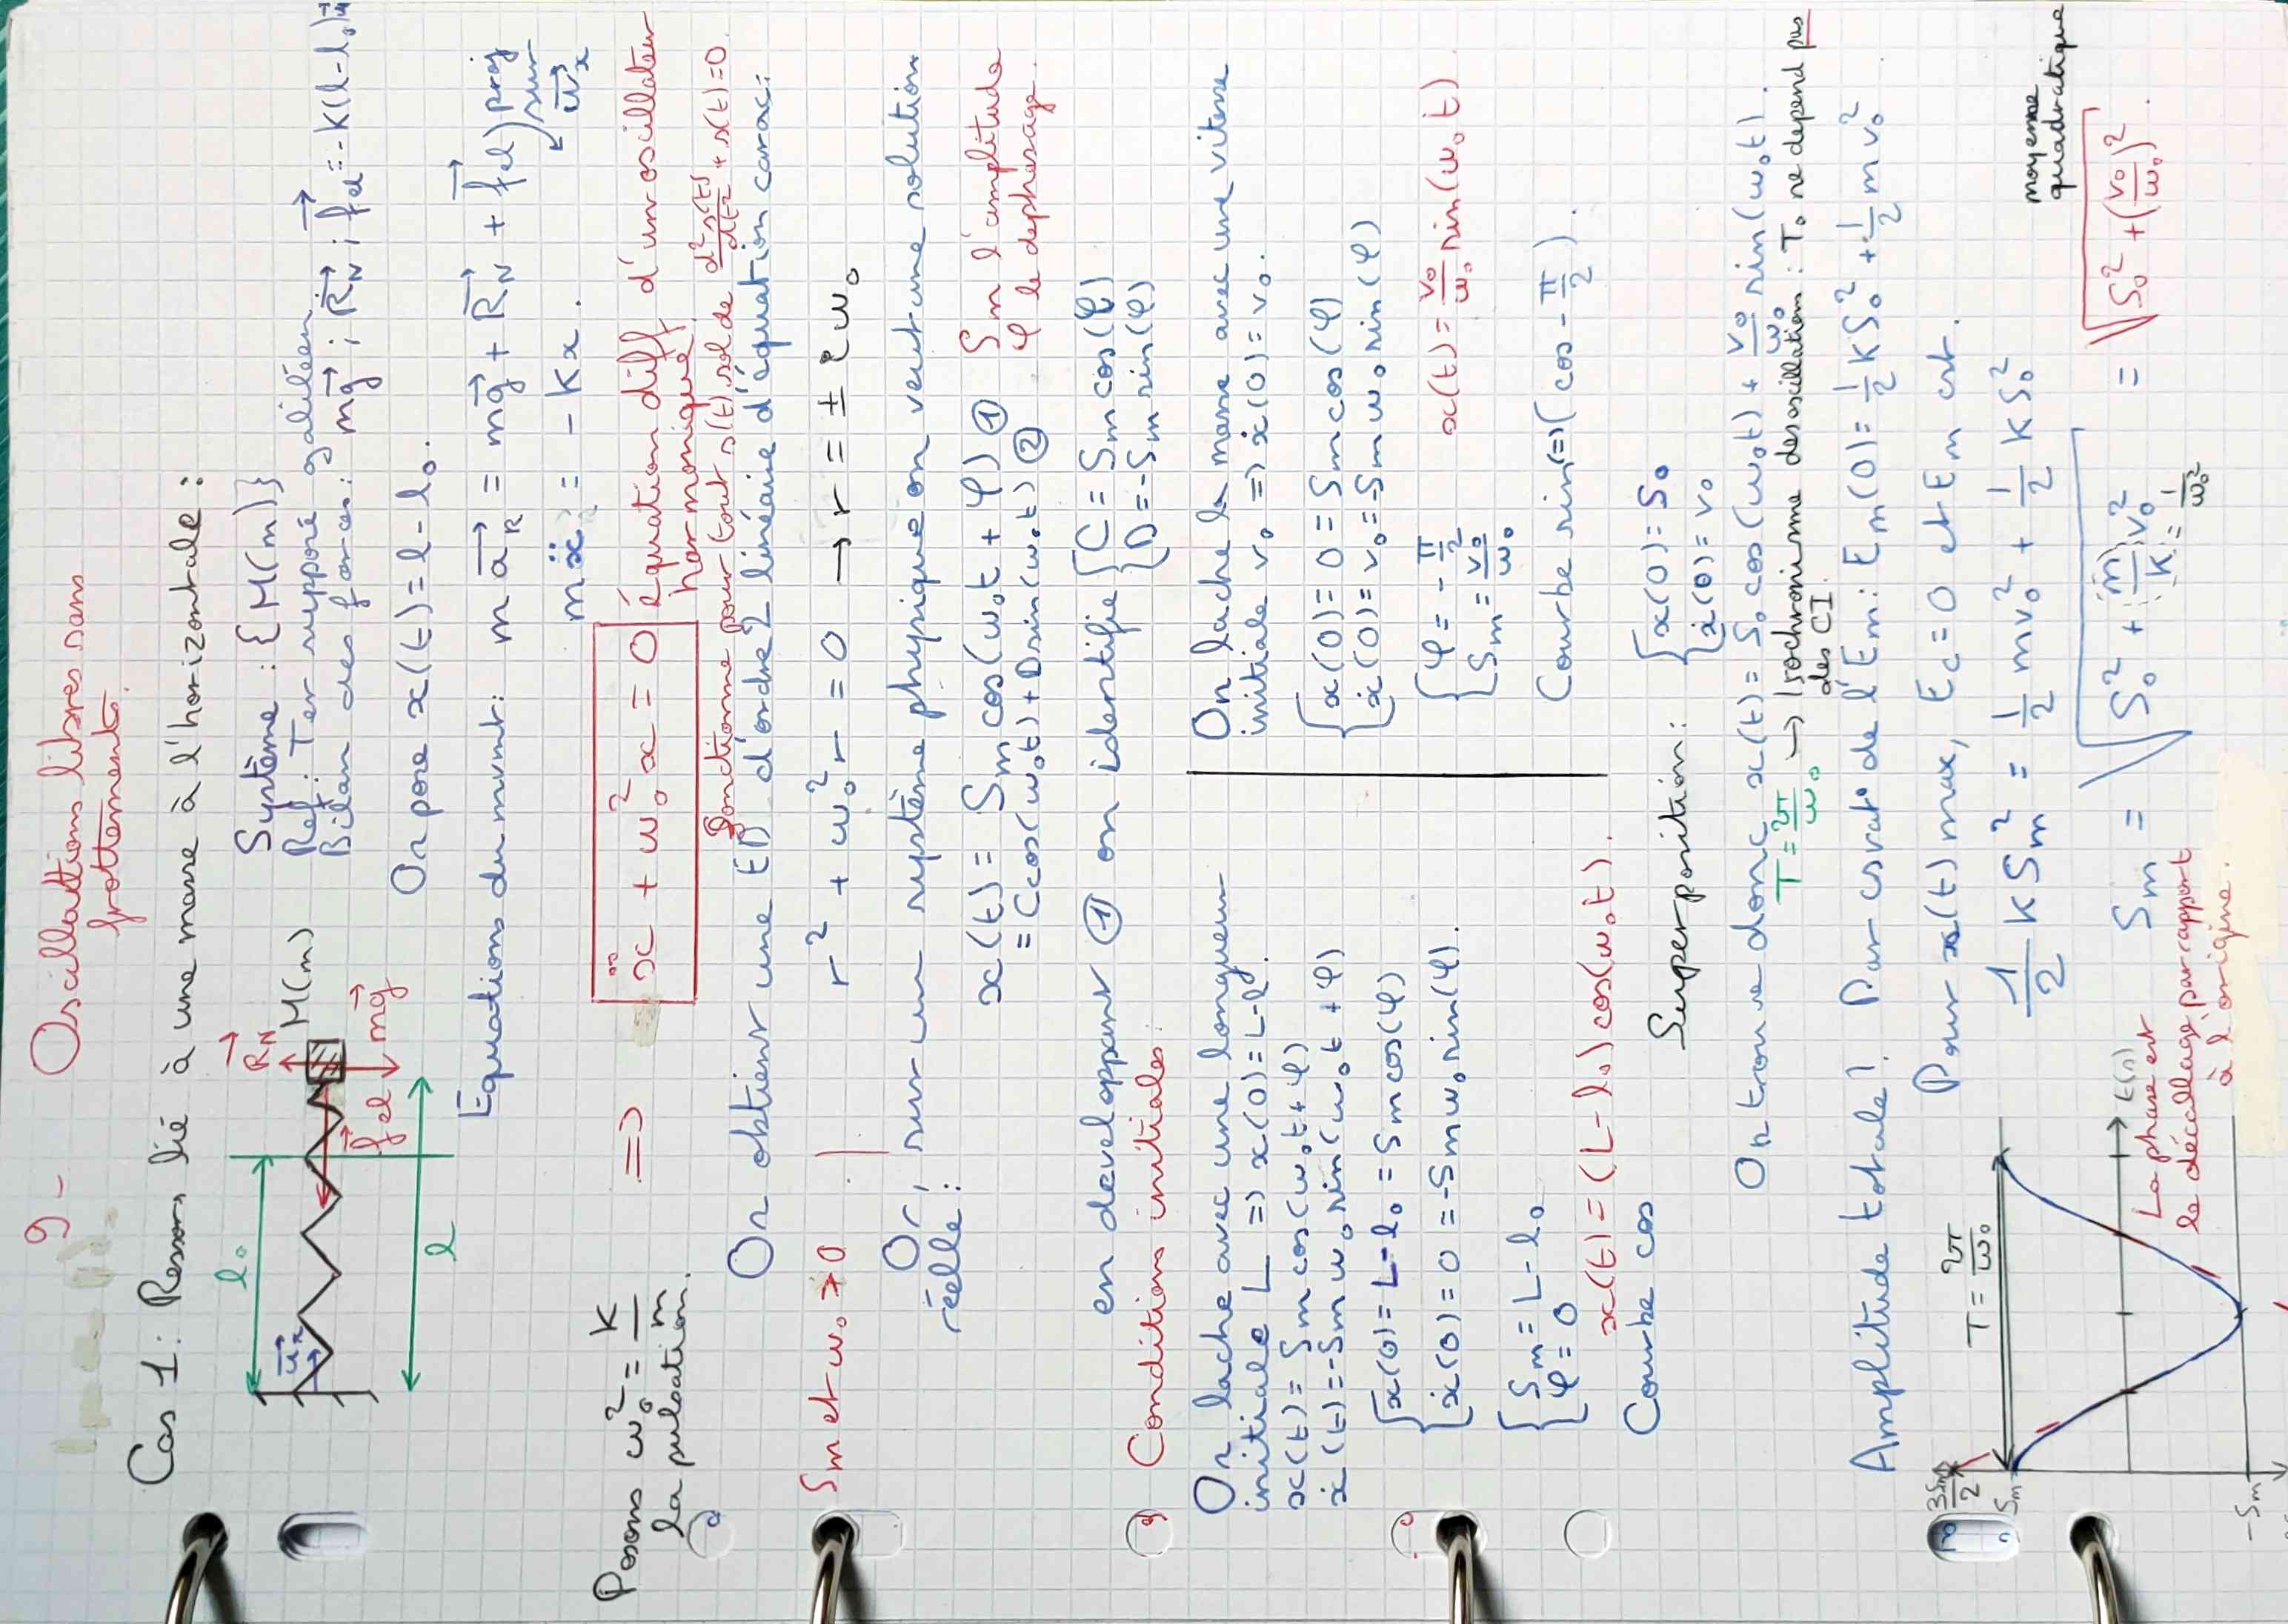 9 - Oscillations libres sans
frottements.
Cas 1 : Ressort lié à une masse à l'horizontale :
l₀
u⃗ₓ
R⃗_N
M(m)
f⃗el
mg⃗
l
Système : {M(m)}
Ref : Ter supposé galiléen.
Bilan des forces : mg⃗ ; R⃗_N ; f⃗el = -K(l-l₀)u⃗ₓ
On pose x(t) = l - l₀.
Equations du mvmt : m a⃗_R = mg⃗ + R⃗_N + f⃗el ) proj
sur
u⃗ₓ
mẍ = - Kx.
Posons ω₀² = K/m
la pulsation.
=> ẍ + ω₀² x = 0
équation diff d'un oscillateur
harmonique.
fonctionne pour tout s(t) sol de d²s(t)/dt² + s(t) = 0.
On obtient une ED d'ordre 2 linéaire d'équation carac :
r² + ω₀² r = 0 → r = ± i ω₀
Sm et ω₀ > 0
Or, sur un système physique on veut une solution
réelle :
x(t) = Sm cos(ω₀t + φ) ①
= C cos(ω₀t) + D sin(ω₀t) ②
Sm l'amplitude
φ le dephasage.
en developpant ① on identifie { C = Sm cos(φ)
D = -Sm sin(φ)
Conditions initiales :
On lache avec une longueur
initiale L => x(0) = L-l₀.
x(t) = Sm cos(ω₀t + φ)
ẋ(t) = -Sm ω₀ sin(ω₀t + φ)
{ x(0) = L-l₀ = Sm cos(φ)
ẋ(0) = 0 = -Sm ω₀ sin(φ).
{ Sm = L - l₀
φ = 0
x(t) = (L - l₀) cos(ω₀t).
Courbe cos
On lache la masse avec une vitesse
initiale v₀ => ẋ(0) = v₀.
{ x(0) = 0 = Sm cos(φ)
ẋ(0) = v₀ = -Sm ω₀ sin(φ)
{ φ = -π/2
Sm = v₀/ω₀
x(t) = v₀/ω₀ sin(ω₀t).
Courbe sin (=> cos - π/2).
Superposition :
{ x(0) = S₀
ẋ(0) = v₀
On trouve donc x(t) = S₀ cos(ω₀t) + v₀/ω₀ sin(ω₀t).
T = 2π/ω₀ → Isochronisme des oscillation : T₀ ne depend pas
des CI.
Amplitude totale ? Par csrat° de l'Em : Em(0) = 1/2 KS₀² + 1/2 mv₀²
Pour x(t) max, Ec = 0 et Em cst.
1/2 KSm² = 1/2 mv₀² + 1/2 KS₀²
Sm = √(S₀² + (m/K) v₀²) = √(S₀² + (v₀/ω₀)²).
= 1/ω₀²
moyenne
quadratique
T = 2π/ω₀
3Sm/2
Sm
-Sm
t(s)
La phase est
le décallage par rapport
à l'origine.